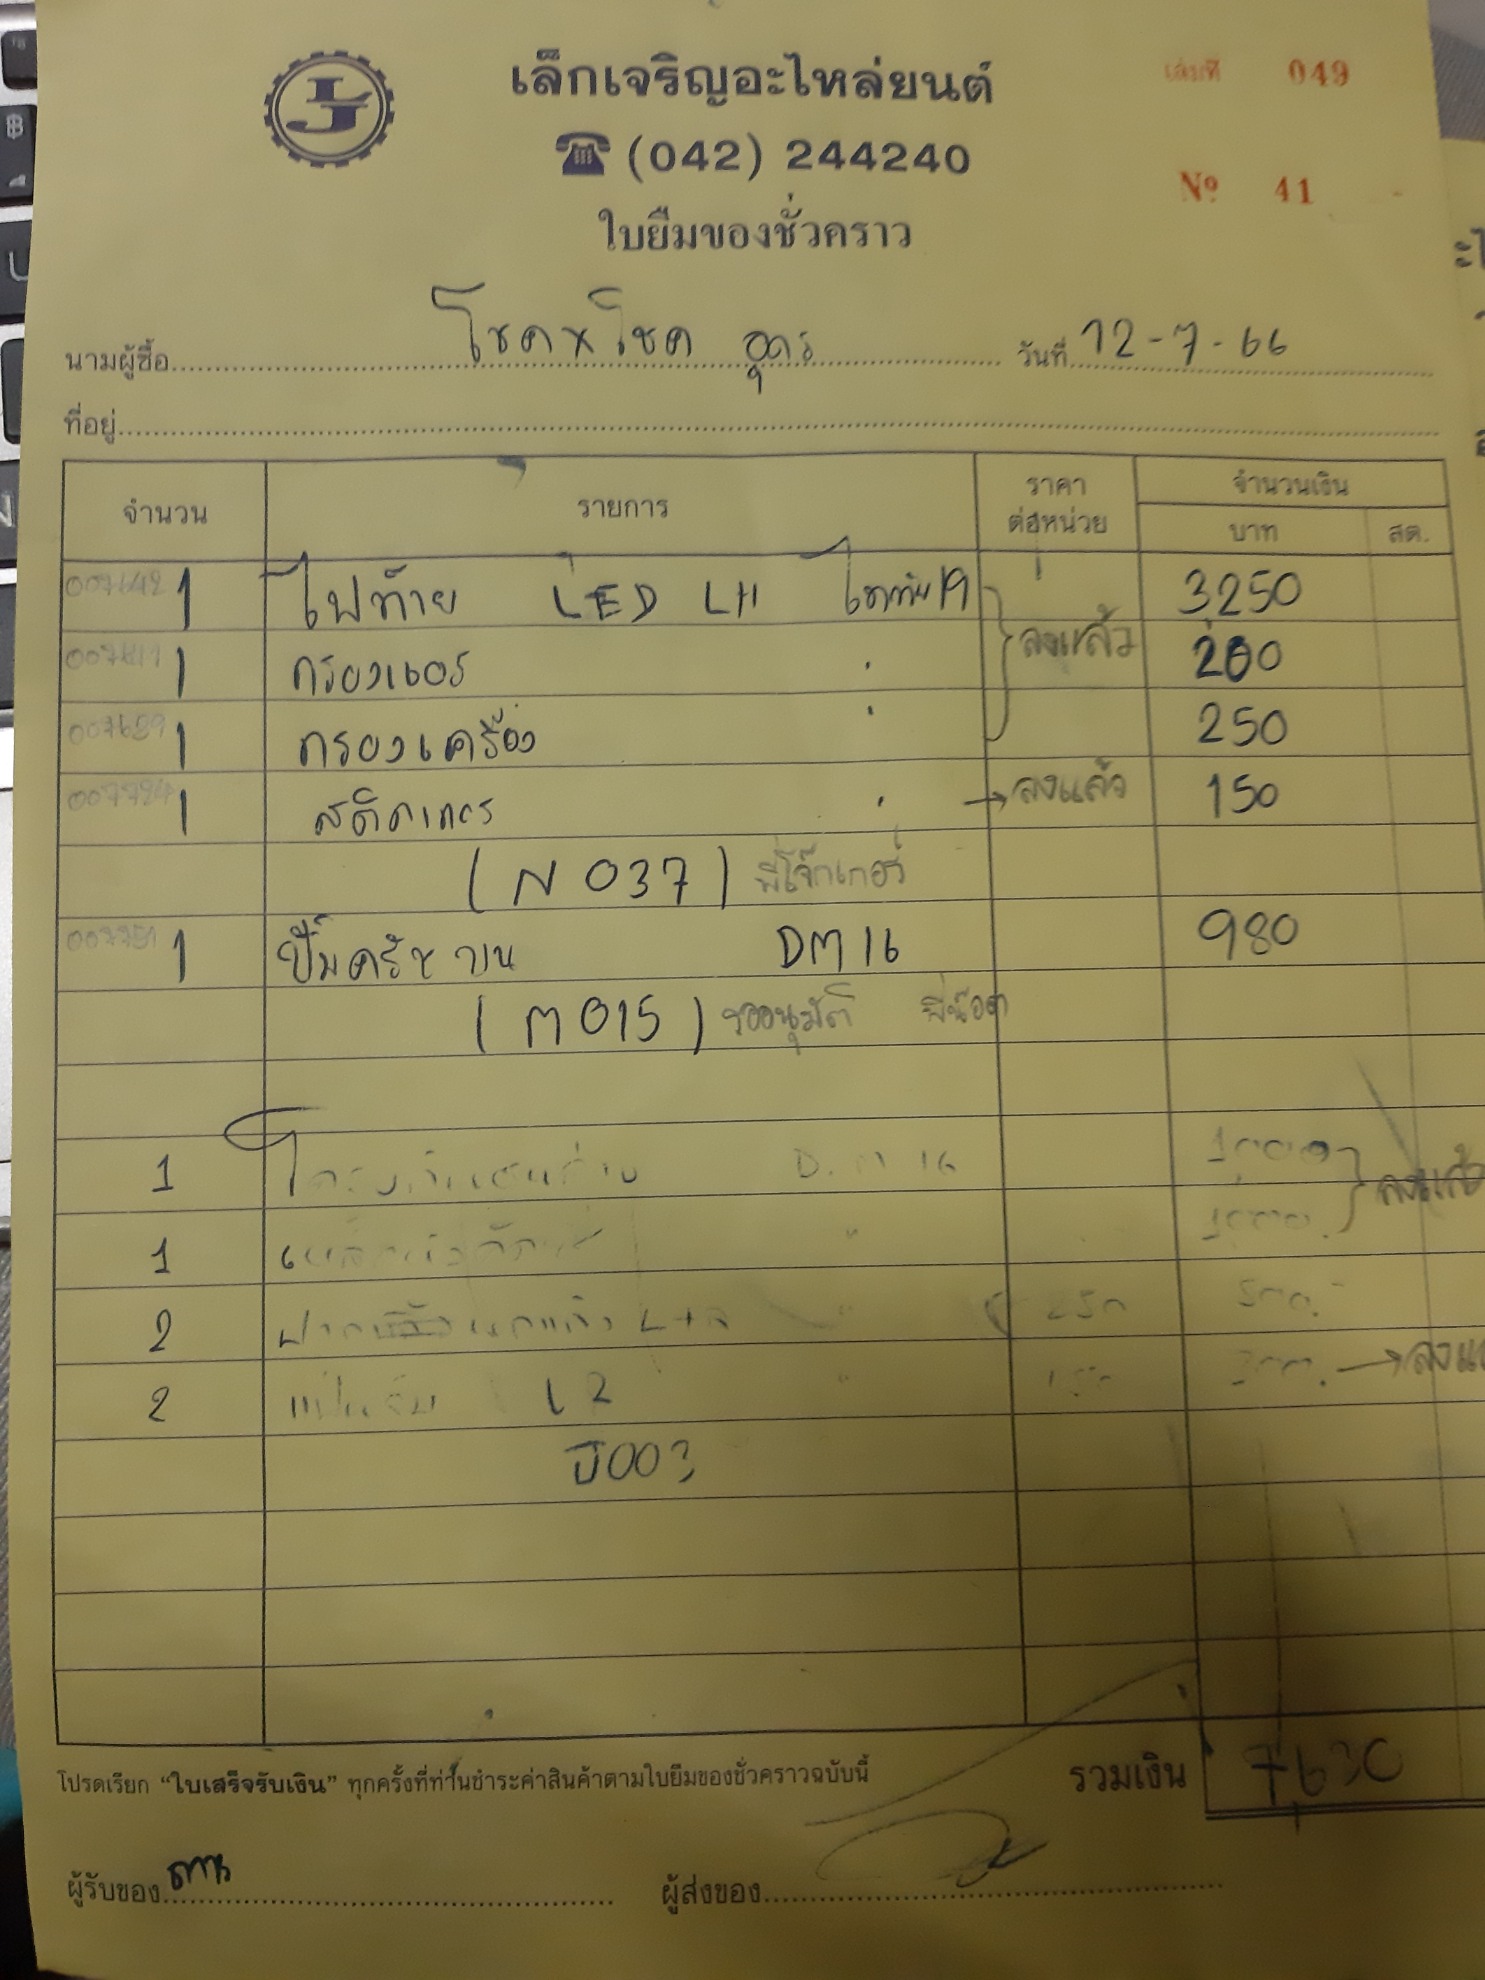 เล็กเจริญอะไหล่ยนต์
เล่มที่ 049
☎ (042) 244240
Nº 41
ใบยืมของชั่วคราว
นามผู้ซื้อ โชค×โชค อุดร วันที่ 12-7-66
ที่อยู่
จำนวน รายการ ราคาต่อหน่วย จำนวนเงิน
บาท สต.
1 ไฟท้าย LED LH 19 3250
1 กรองแอร์ ลงแล้ว 200
1 กรองเครื่อง 250
1 สติกเกอร์ → ลงแล้ว 150
(N 037) พี่โจ๊กเกอร์
1 ปั๊มครัชบน DM 16 980
(M 015) รออนุมัติ พี่น๊อต
1 D.M 16 1000 ลงแล้ว
1 " 1000
2 L+R " 250 500.-
2 L2 " 150 300.- → ลงแ
ป003
โปรดเรียก “ใบเสร็จรับเงิน” ทุกครั้งที่ท่านชำระค่าสินค้าตามใบยืมของชั่วคราวฉบับนี้ รวมเงิน 7630
ผู้รับของ ผู้ส่งของ